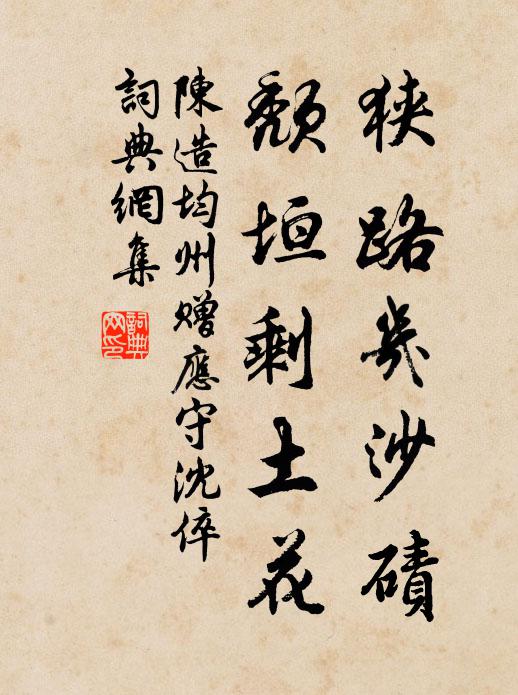 狹路幾沙磧
頹垣剩土花
陳造均州贈應守沈倅
詞典網集
詞典網印